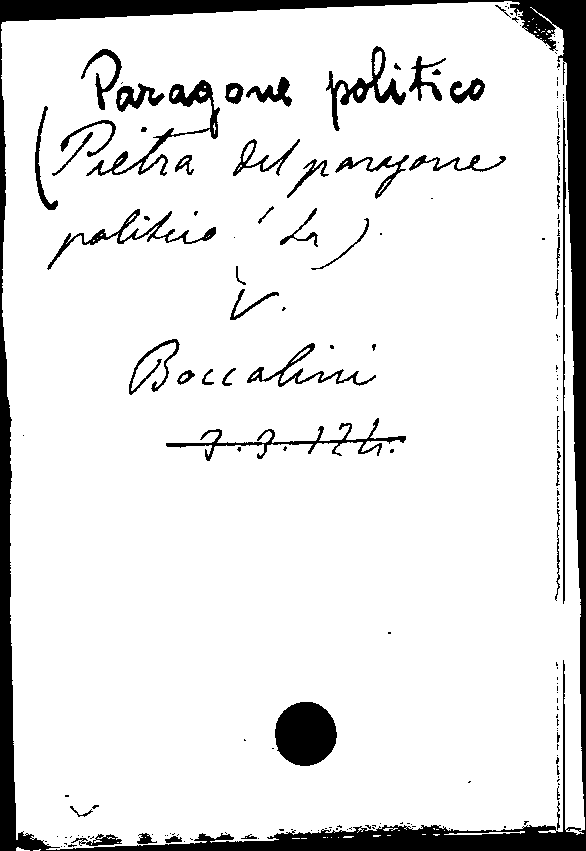 Paragone politico
(Pietra del paragone
politico 'La)
V.
Boccalini
7.3.124.